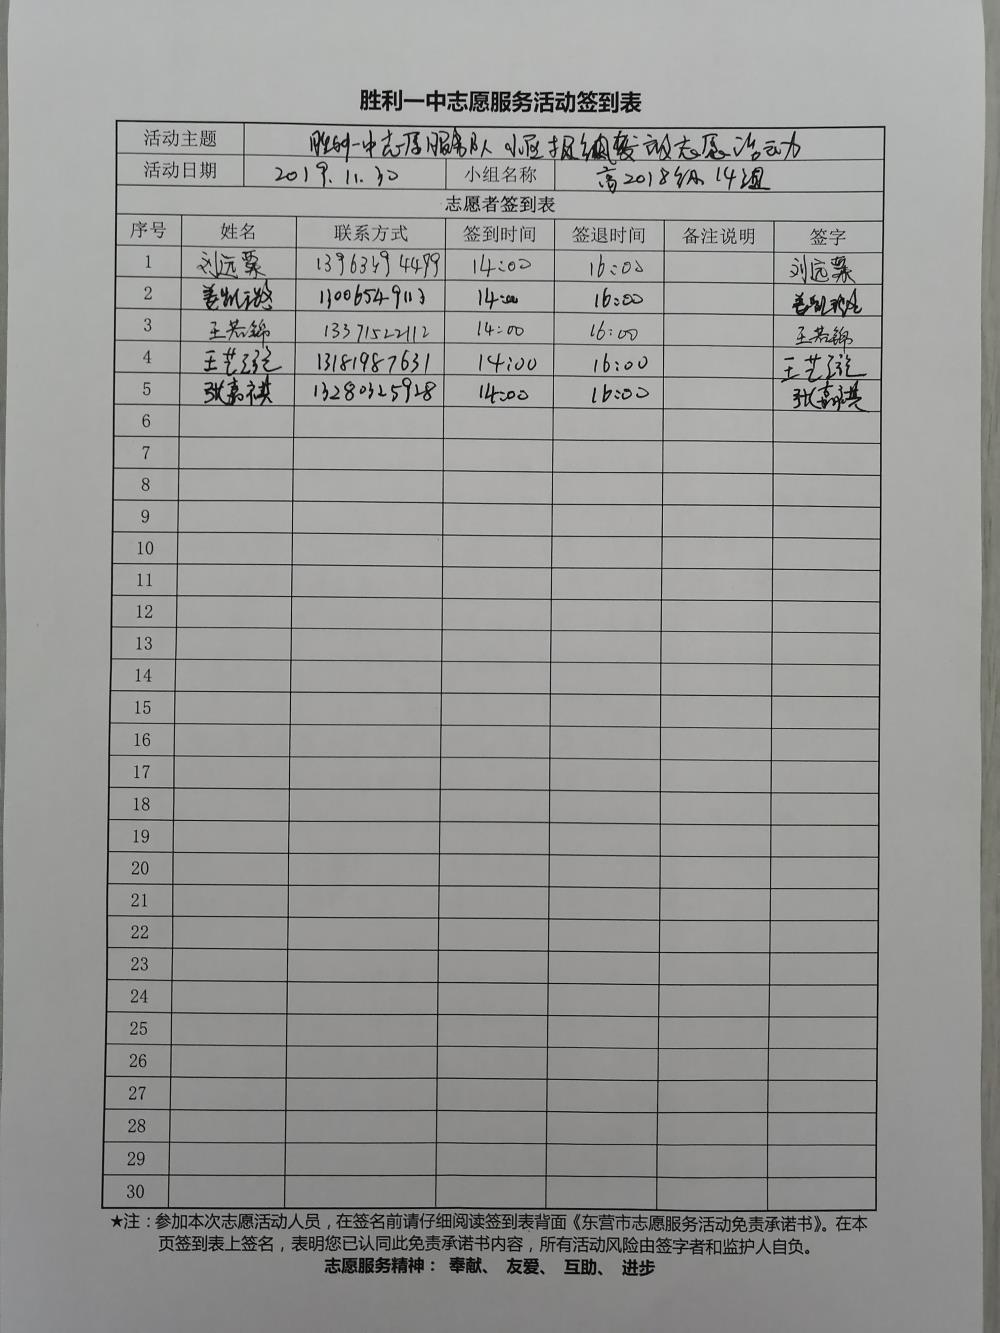 胜利一中志愿服务活动签到表
活动主题 胜利一中志愿服务队 小区 志愿活动
活动日期 2019.11.30 小组名称 高2018级14组
志愿者签到表
序号 姓名 联系方式 签到时间 签退时间 备注说明 签字
1 刘远粟 13963494499 14:00 16:00 刘远粟
2 姜凯 13006549113 14:00 16:00 姜凯
3 王若锦 13371522112 14:00 16:00 王若锦
4 王艺 13181987631 14:00 16:00 王艺
5 张嘉祺 13280325928 14:00 16:00 张嘉祺
6
7
8
9
10
11
12
13
14
15
16
17
18
19
20
21
22
23
24
25
26
27
28
29
30
★注：参加本次志愿活动人员，在签名前请仔细阅读签到表背面《东营市志愿服务活动免责承诺书》。在本
页签到表上签名，表明您已认同此免责承诺书内容，所有活动风险由签字者和监护人自负。
志愿服务精神： 奉献、 友爱、 互助、 进步